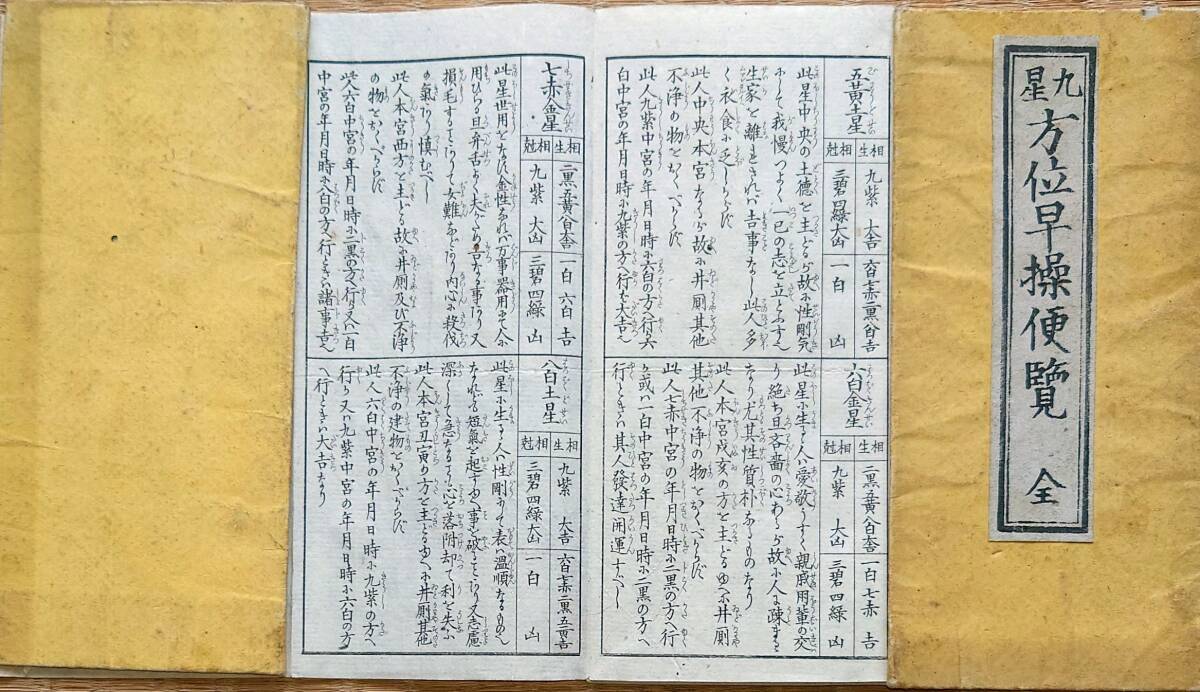 九星
方位早操便覽 全
五黃土星
相生
相尅
九紫 大吉
六白七赤二黒八白吉
三碧四綠大凶
一白 凶
此星中央の土德を主どる故に性剛氣
にして我慢つよく一己の志を立とふすん
生家を離れされバ吉事なし此人多
く衣食に乏しからず
此人中央本宮なるが故に井厠其他
不浄の物をおくべからず
此人九紫中宮の年月日時に六白の方へ行か六
白中宮の年月日時に九紫の方へ行バ大吉なり
六白金星
相生
相尅
二黒五黃八白大吉
一白七赤 吉
九紫 大凶
三碧四綠 凶
此星に生るゝ人ハ愛敬うすく親戚朋輩の交
り絶ち且吝嗇の心あるが故に人に疎まるゝ
なり尤其性質朴なるものなり
此人本宮戌亥の方を主どるゆへに井厠
其他不淨の物をおくべからず
此人七赤中宮の年月日時に二黒の方へ行
か或ハ一白中宮の年月日時に二黒の方へ
行ときハ其人發達開運すべし
七赤金星
相生
相尅
二黒五黃八白大吉
一白六白 吉
九紫 大凶
三碧四綠 凶
此星世用をなす金性なれバ万事器用にて人に
用ひらる且弁舌よく夫がため吉なる事あり又
損毛することありて女難などあり内心に殺伐
の氣あり慎むべし
此人本宮西方を主どる故に井厠及び不浄
の物をおくべからず
此人六白中宮の年月日時に二黒の方へ行又ハ一白
中宮の年月日時に八白の方へ行ときハ諸事吉なり
八白土星
相生
相尅
九紫 大吉
六白七赤二黒五黃吉
三碧四綠大凶
一白 凶
此星に生るゝ人ハ性剛にて表ハ溫順なるもの
なれども短氣を起すゆへ事を破ることあり又志慮
深くして急なるゆへ心を落附却て利を失ふ
此人本宮丑寅の方を主どるゆへに井厠其他
不浄の建物をおくべからず
此人六白中宮の年月日時に九紫の方へ
行か又ハ九紫中宮の年月日時に六白の方
へ行ときハ大吉なり